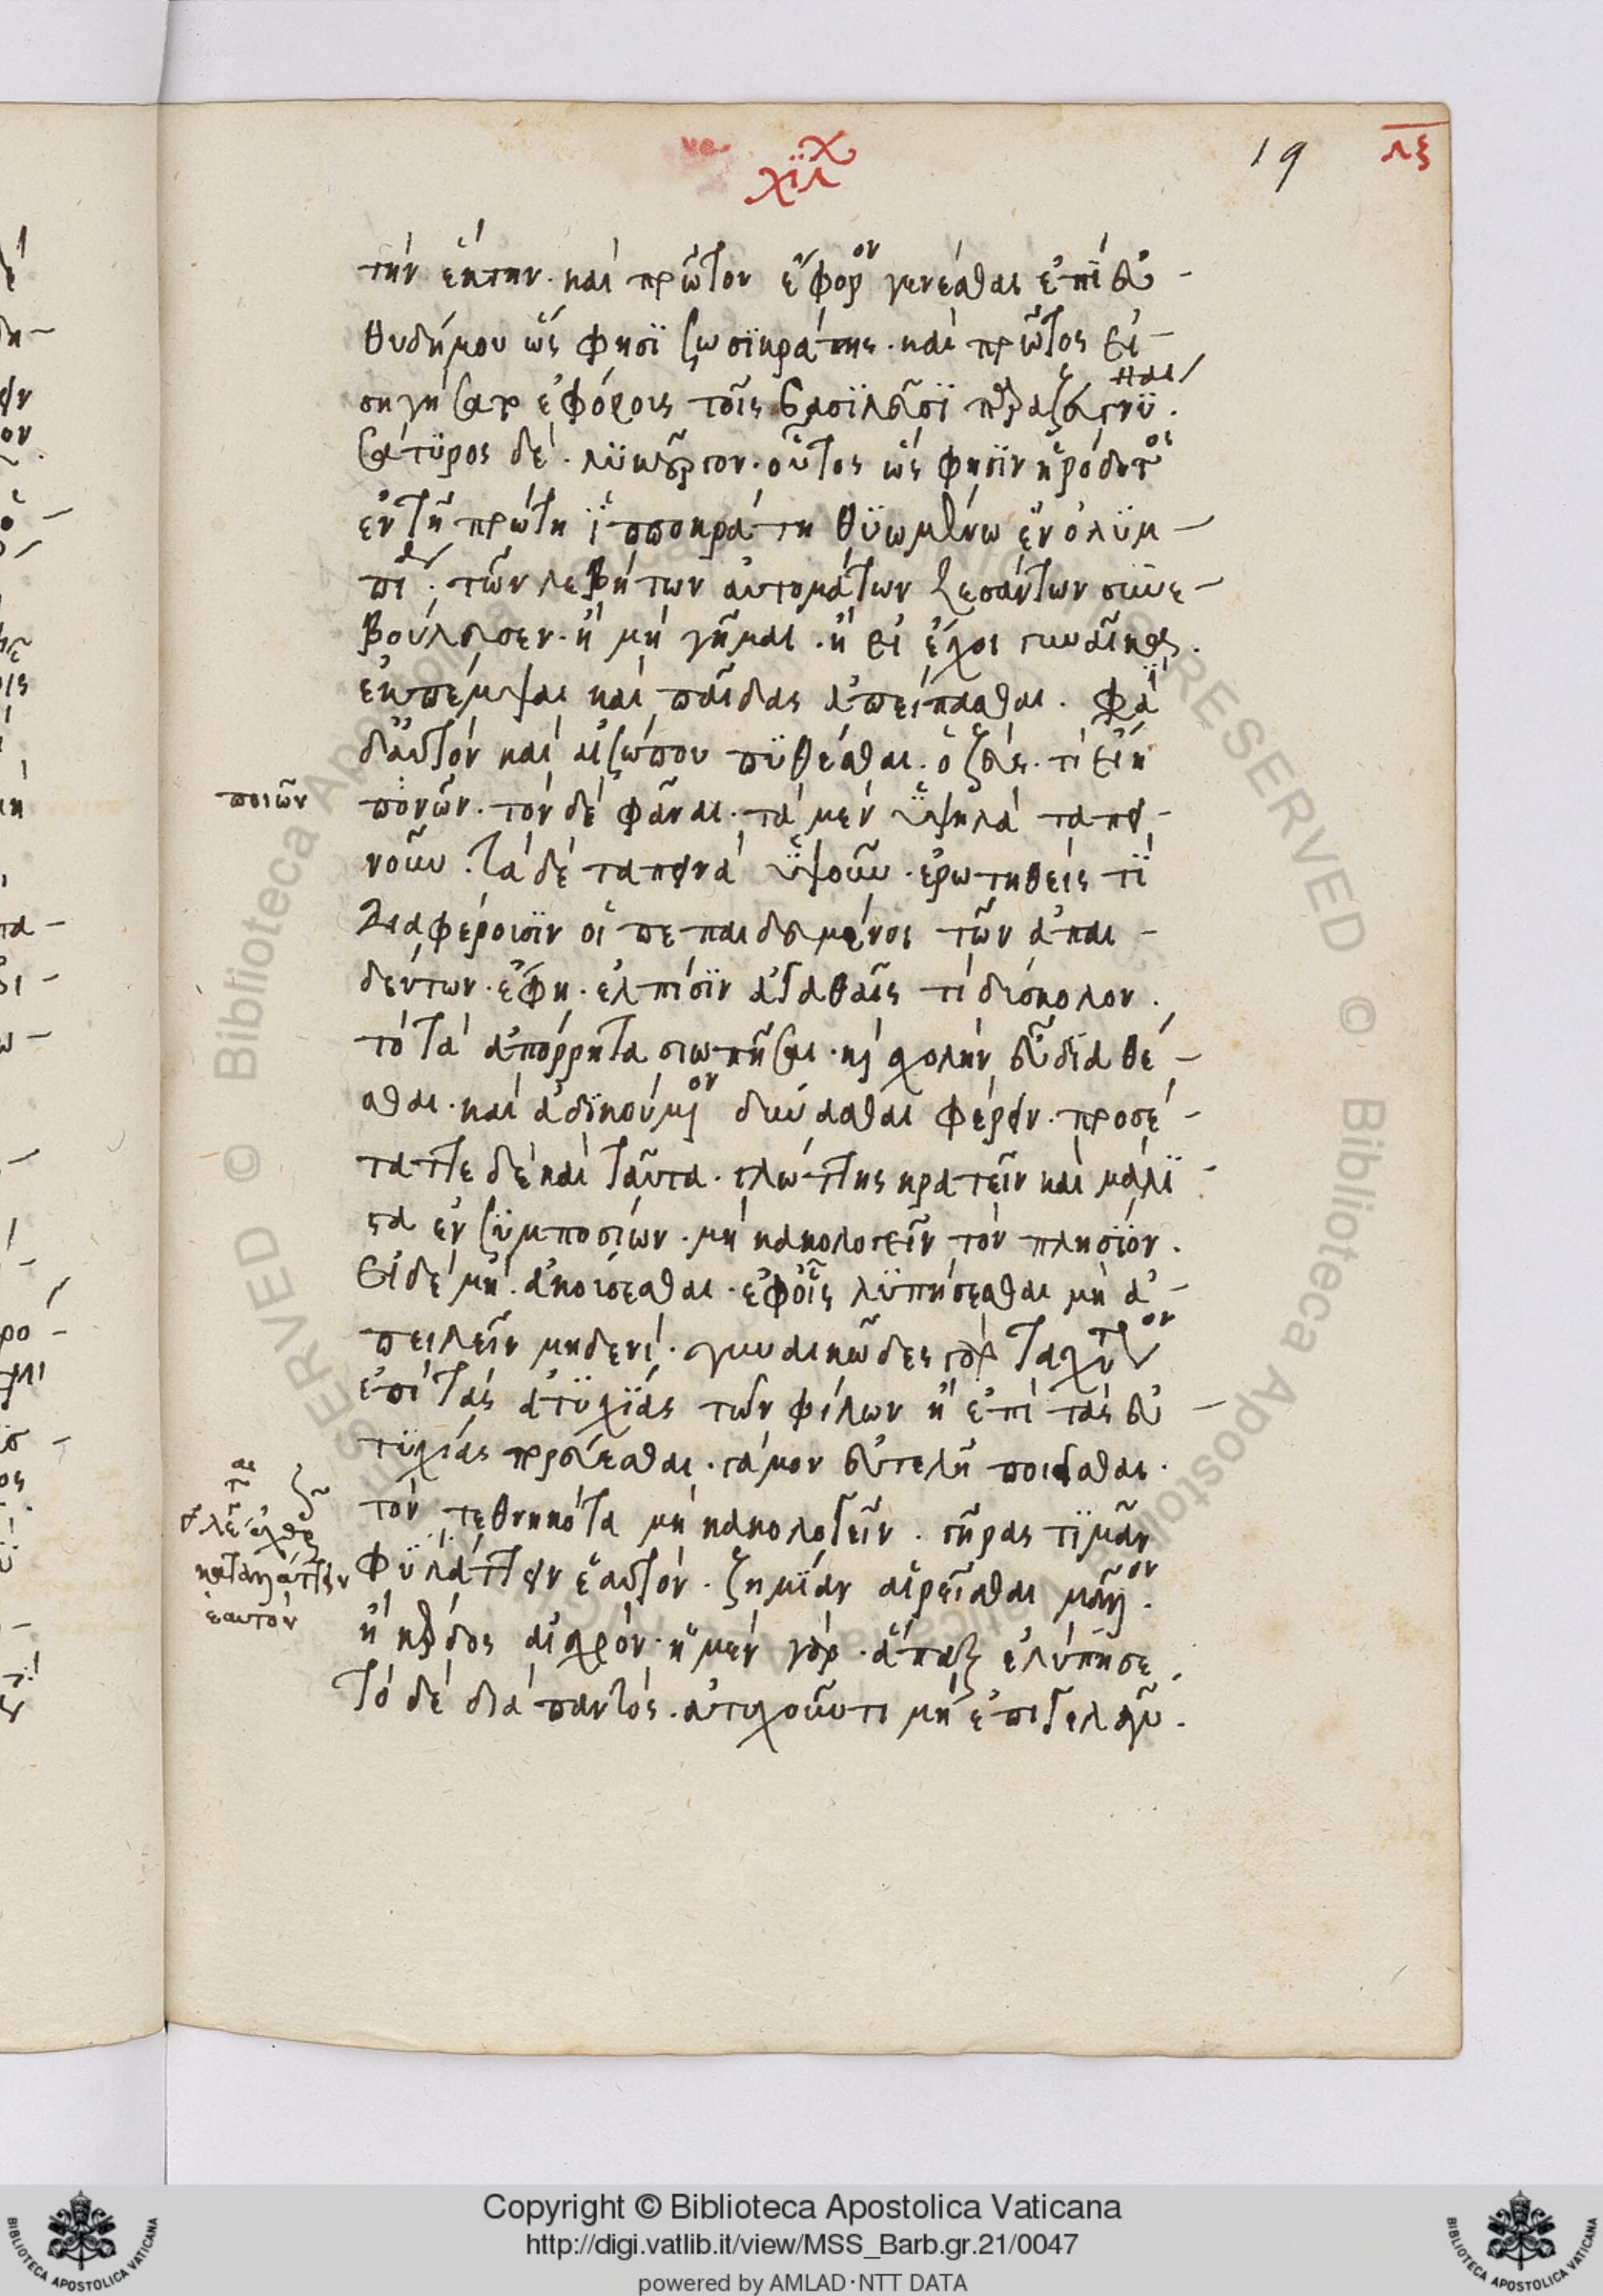 χῖλ
19
λξ
τὴν ἕκτην. καὶ πρῶτον ἔφορον γενέσθαι ἐπὶ εὐ-
θυδήμου ὥς φησὶ ζωσϊκράτης. καὶ πρῶτος εἰ-
σηγήσατο ἐφόρους τοῖς βασϊλεῦσϊ παραζευγνϋ.
σάτϋρος δὲ. λϋκοῦργον. οὗτος ὥς φησϊν ἡρόδοτος
ἐν τῆ πρώτη ἱπποκράτη θϋωμένω ἐν ὀλϋμ-
πία. τῶν λεβήτων αὐτομάτων ζεσάντων συνε-
βούλευσεν. ἢ μὴ γῆμαι. ἢ εἰ ἔχοι γυναῖκας.
ἐκπέμψαι καὶ παῖδας ἀπείπασθαι. φασὶ
δαυτὸν καὶ αἰζώπου πϋθέσθαι. ὁ ζεὺς. τί εἴη
πονῶν. τὸν δὲ φάναι. τὰ μὲν ὑψηλὰ ταπει-
ποιῶν
νοῦν. τὰ δὲ ταπεινὰ ὑψοῦν. ἐρωτηθεὶς τί
διαφέρουσϊν οἱ πεπαιδευμένοι τῶν ἀπαι-
δεύτων. ἔφη. ἐλπίσϊν ἀγαθαῖς τί δύσκολον.
τὸ τὰ ἀπόρρητα σιωπῆσαι. καὶ σχολὴν εὖ διαθέ-
σθαι. καὶ ἀδϊκούμενον δύνασθαι φέρειν. προσέ-
ταττε δὲ καὶ ταῦτα. γλώττης κρατεῖν καὶ μάλϊ-
στα ἐν ζϋμποσίων. μὴ κακολογεῖν τὸν πλησϊόν.
εἰ δὲ μὴ. ἀκούσεσθαι. ἐφοἷς λϋπήσεσθαι μὴ ἀ-
πειλεῖν μηδενὶ. γυναικῶδες γὰρ ταχύτερον
ἐπὶ τὰς ἀτϋχϊὰς τῶν φίλων ἢ ἐπὶ τὰς εὐ-
τϋχίας προϊέεσθαι. γάμον εὐτελῆ ποιεῖσθαι.
τὸν τεθνηκότα μὴ κακολογεῖν. γῆρας τϊμᾶν
φϋλάττειν ἑαυτὸν. ζημίαν αἱρεῖσθαι μᾶλλον.
καταπλάττειν
ἑαυτὸν
ἢ κέρδος αἰσχρόν. ἡ μὲν γὰρ. ἅπαξ ἐλύπησε.
τὸ δὲ διὰ παντὸς. ἀτυχοῦντι μὴ ἐπιγελᾶν.
Copyright © Biblioteca Apostolica Vaticana
http://digi.vatlib.it/view/MSS_Barb.gr.21/0047
powered by AMLAD·NTT DATA